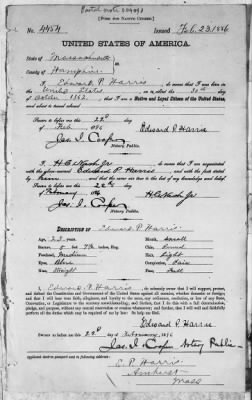 [FORM FOR NATIVE CITIZEN.]
No. 4454 Issued Feb. 23, 1896
UNITED STATES OF AMERICA.
State of Massachusetts
County of Hampshire
I, Edward P. Harris, do swear that I was born in the
United States, on or about the 30th day
of 1862, that I am a Native and Loyal Citizen of the United States,
and about to travel abroad.
Sworn to before me this 22d
of Feb 1896 Edward P. Harris
Jas. I. Cooper
Notary Public.
I, H.C. Nash Jr, do swear that I am acquainted
with the above named Edward P. Harris and with the facts stated
by him and that the same are true to the best of my knowledge and belief.
Sworn to before me this 22nd
of February 1896 H.C. Nash Jr
Jas. I. Cooper
Notary Public.
DESCRIPTION OF Edward P. Harris.
Age, 33 years. Mouth, small
Stature, 5 feet, inches, Eng. Chin, Round
Forehead, Medium Hair, Light
Eyes, Blue Complexion, Fair
Nose, Straight Face, Full
I, Edward P. Harris, do solemnly swear that I will support, protect,
and defend the Constitution and Government of the United States against all enemies, whether domestic or foreign;
and that I will bear true faith, allegiance, and loyalty to the same, any ordinance, resolution, or law of any State,
Convention, or Legislature to the contrary notwithstanding; and further, that I do this with a full determination,
pledge, and purpose, without any mental reservation or evasion whatsoever; and further, that I will well and faithfully
perform all the duties which may be required of me by law: So help me God.
Edward P. Harris
Sworn to before me this 22d day of February, 1896
Jas. I. Cooper Notary Public.
Applicant desires passport sent to following address:
E. P. Harris
Amherst
Mass